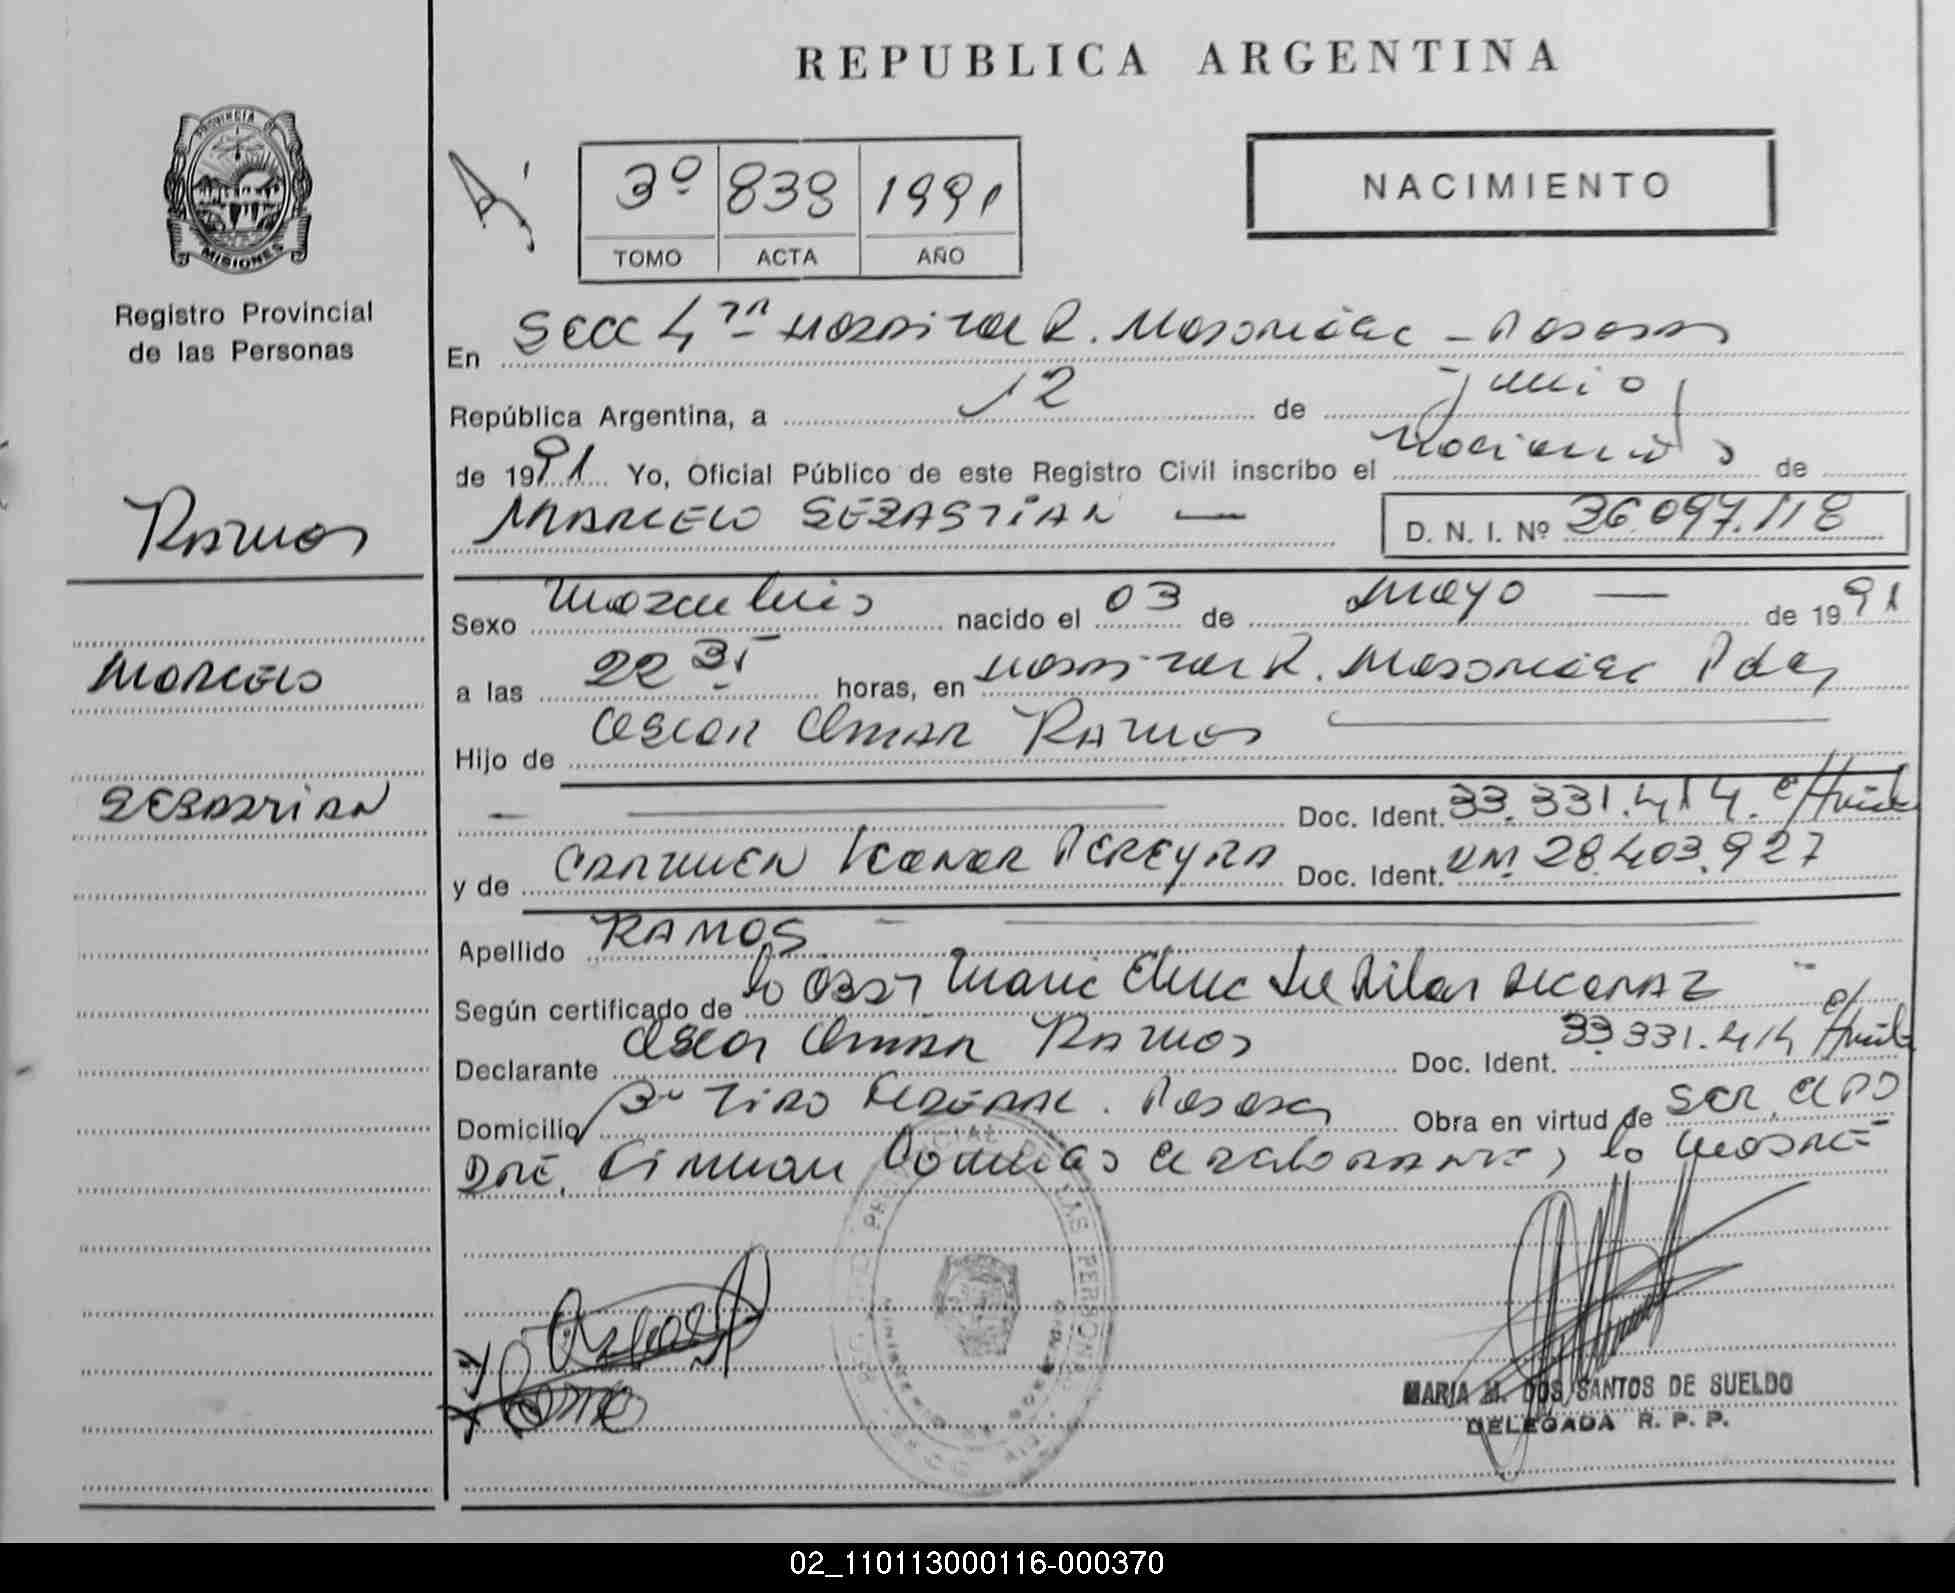 REPUBLICA ARGENTINA
PROVINCIA DE
MISIONES
Registro Provincial
de las Personas
3º 838 1991
TOMO ACTA AÑO
NACIMIENTO
En Secc 4ª Hospital R. Madariaga - Posadas
República Argentina, a 12 de junio
de 1991 Yo, Oficial Público de este Registro Civil inscribo el nacimiento de
MARCELO SEBASTIAN — D. N. I. Nº 36.097.118
Ramos
Marcelo
Sebastian
Sexo Masculino nacido el 03 de mayo — de 1991
a las 22 35 horas, en Hospital R. Madariaga Pdas
Hijo de Oscar Omar Ramos
— Doc. Ident. 33.331.414.
y de Carmen Leonor Pereyra Doc. Ident. 28.403.927
Apellido RAMOS —
Según certificado de la Obst Maria del Pilar
Declarante Oscar Omar Ramos Doc. Ident. 33.331.414
Domicilio Bº Tiro Federal. Posadas Obra en virtud de ser el
Firman la madre
REGISTRO PROVINCIAL DE LAS PERSONAS
MARIA M. DOS SANTOS DE SUELDO
DELEGADA R. P. P.
02_110113000116-000370